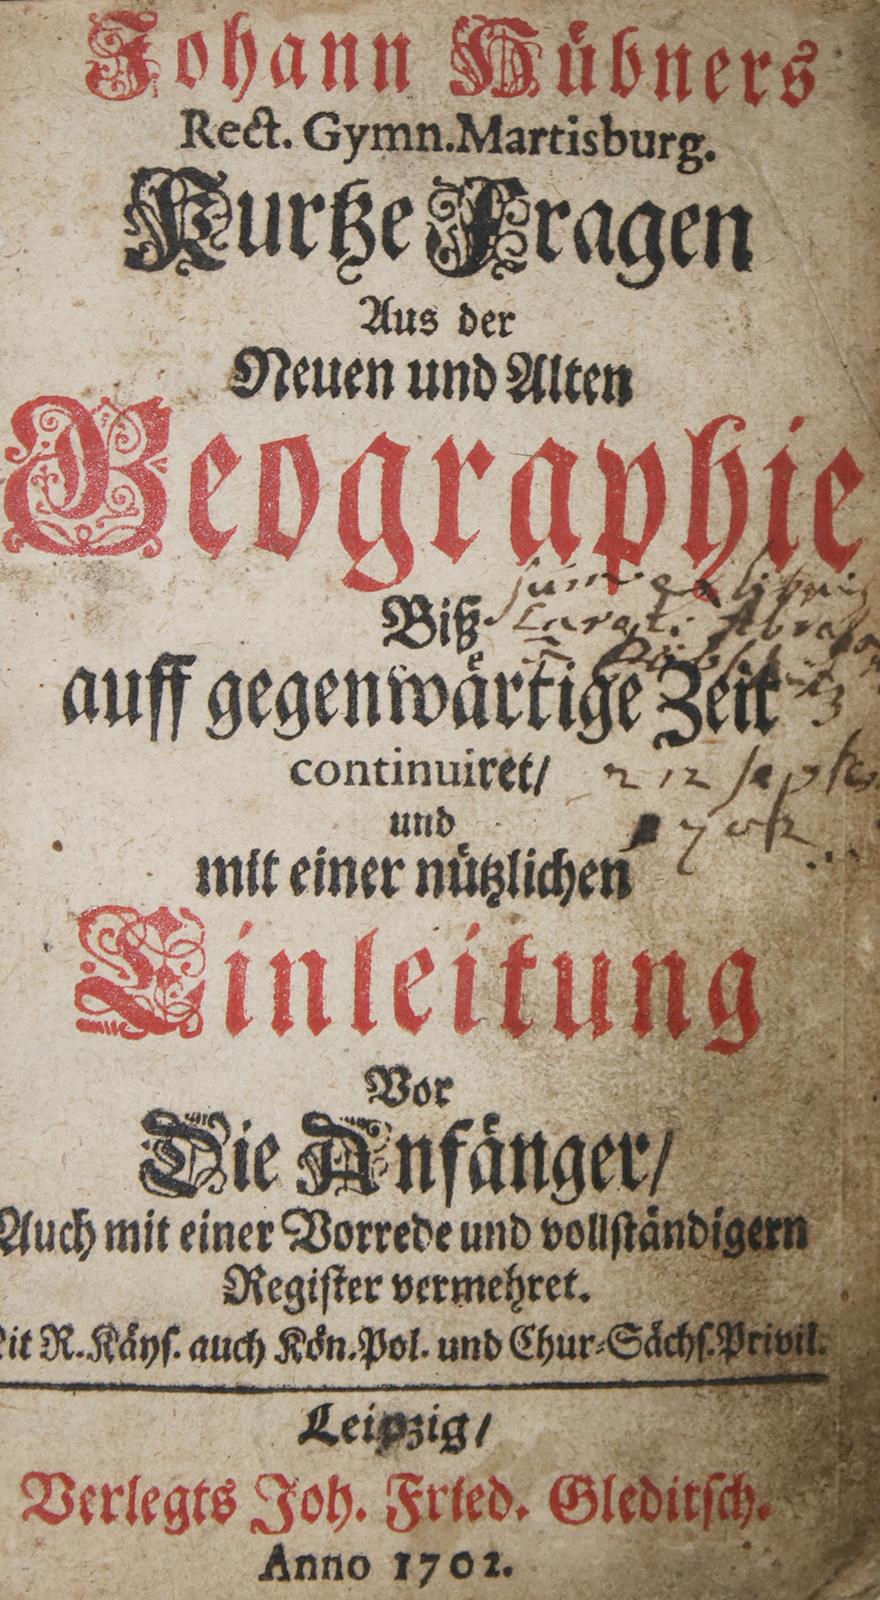 Johann Hübners
Rect. Gymn. Martisburg.
Kurtze Fragen
Aus der
Neuen und Alten
Geographie
Biß
auff gegenwärtige Zeit
continuiret/
und
mit einer nützlichen
Einleitung
Vor
Die Anfänger/
Auch mit einer Vorrede und vollständigern
Register vermehret.
it R. Käys. auch Kön. Pol. und Chur-Sächs. Privil.
Leipzig/
Verlegts Joh. Fried. Gleditsch.
Anno 1702.